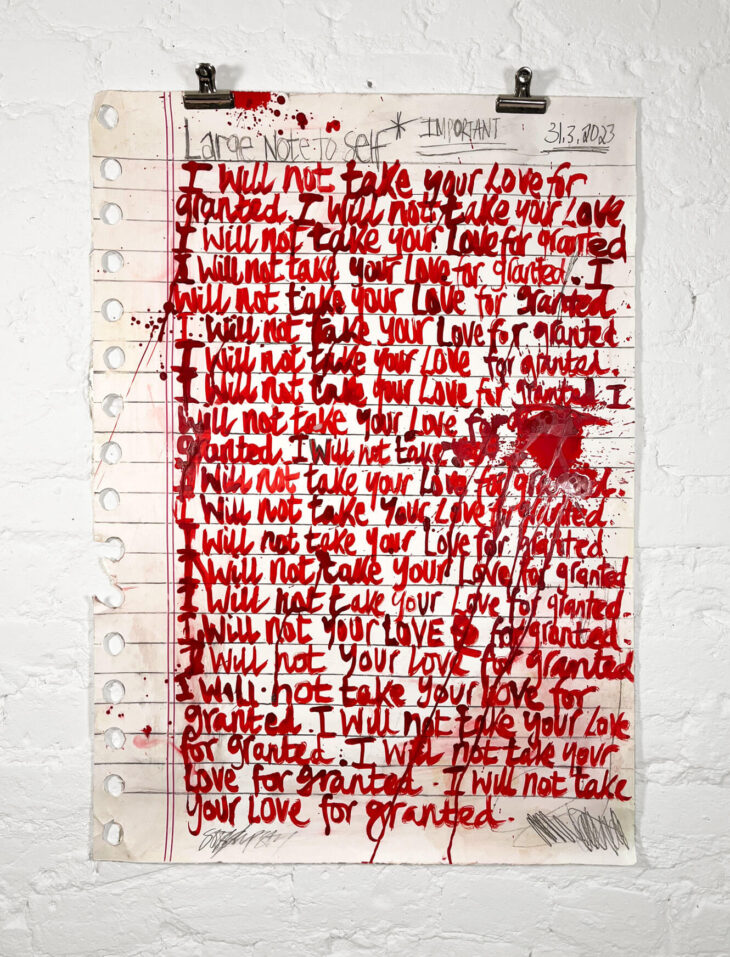 Large Note to self * IMPORTANT 31.3.2023
I will not take your Love for
granted. I will not take your Love
I will not take your Love for granted
I will not take your Love for granted. I
will not take your Love for granted
I will not take your Love for granted
I will not take your Love for granted.
I will not take your Love for granted I
will not take your Love for
granted. I will not take
I will not take your Love for granted.
I will not take your Love for granted.
I will not take your Love for granted.
I will not take your Love for granted
I will not take your Love for granted.
I will not your LOVE for granted.
I will not your Love for granted
I will not take your love for
granted. I will not take your Love
for granted. I will not take your
Love for granted. I will not take
your Love for granted.